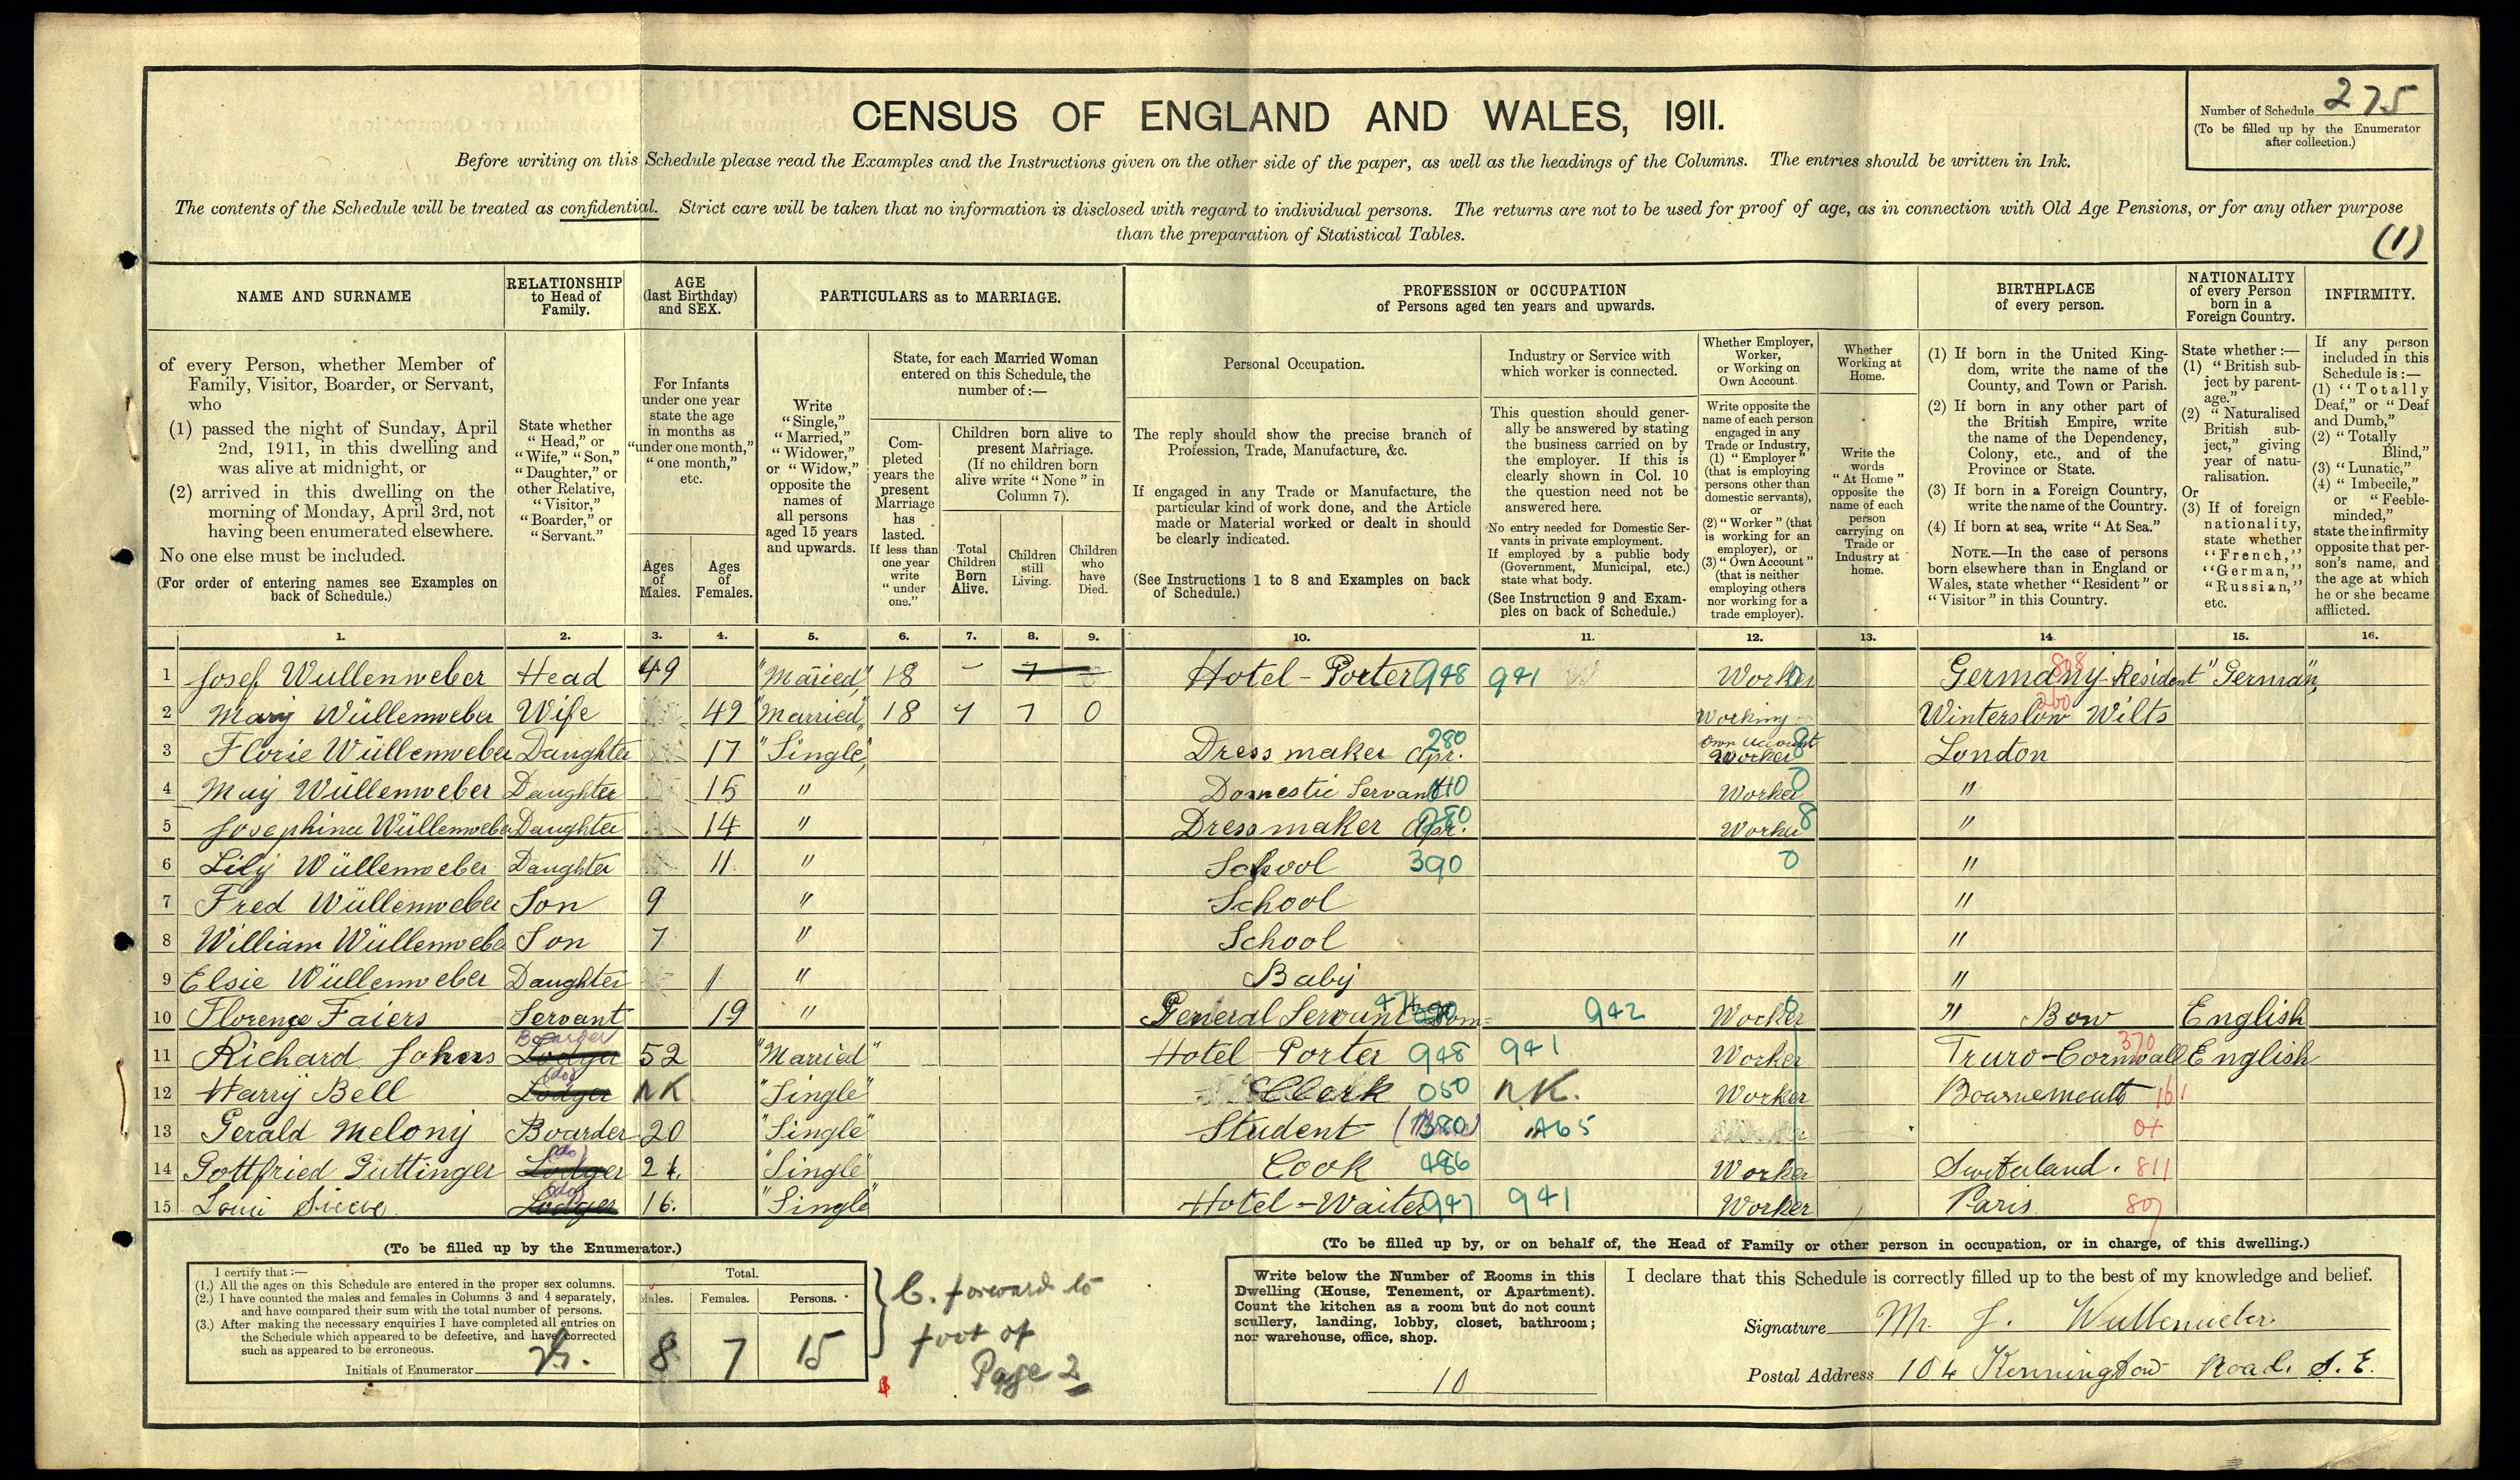 Number of Schedule 275
(To be filled up by the Enumerator
after collection.)
CENSUS OF ENGLAND AND WALES, 1911.
Before writing on this Schedule please read the Examples and the Instructions given on the other side of the paper, as well as the headings of the Columns. The entries should be written in Ink.
The contents of the Schedule will be treated as confidential. Strict care will be taken that no information is disclosed with regard to individual persons. The returns are not to be used for proof of age, as in connection with Old Age Pensions, or for any other purpose
than the preparation of Statistical Tables.
(1)
NAME AND SURNAME
of every Person, whether Member of
Family, Visitor, Boarder, or Servant,
who
(1) passed the night of Sunday, April
2nd, 1911, in this dwelling and
was alive at midnight, or
(2) arrived in this dwelling on the
morning of Monday, April 3rd, not
having been enumerated elsewhere.
No one else must be included.
(For order of entering names see Examples on
back of Schedule.)
RELATIONSHIP
to Head of
Family.
State whether
"Head," or
"Wife," "Son,"
"Daughter," or
other Relative,
"Visitor,"
"Boarder," or
"Servant."
AGE
(last Birthday)
and SEX.
For Infants
under one year
state the age
in months as
"under one month,"
"one month,"
etc.
Ages
of
Males.
Ages
of
Females.
PARTICULARS as to MARRIAGE.
Write
"Single,"
"Married,"
"Widower,"
or "Widow,"
opposite the
names of
all persons
aged 15 years
and upwards.
State, for each Married Woman
entered on this Schedule, the
number of:—
Com-
pleted
years the
present
Marriage
has
lasted.
If less than
one year
write
"under
one."
Children born alive to
present Marriage.
(If no children born
alive write "None" in
Column 7).
Total
Children
Born
Alive.
Children
still
Living.
Children
who
have
Died.
PROFESSION or OCCUPATION
of Persons aged ten years and upwards.
Personal Occupation.
The reply should show the precise branch of
Profession, Trade, Manufacture, &c.
If engaged in any Trade or Manufacture, the
particular kind of work done, and the Article
made or Material worked or dealt in should
be clearly indicated.
(See Instructions 1 to 8 and Examples on back
of Schedule.)
Industry or Service with
which worker is connected.
This question should gener-
ally be answered by stating
the business carried on by
the employer. If this is
clearly shown in Col. 10
the question need not be
answered here.
No entry needed for Domestic Ser-
vants in private employment.
If employed by a public body
(Government, Municipal, etc.)
state what body.
(See Instruction 9 and Exam-
ples on back of Schedule.)
Whether Employer,
Worker,
or Working on
Own Account.
Write opposite the
name of each person
engaged in any
Trade or Industry,
(1) "Employer"
(that is employing
persons other than
domestic servants),
or
(2) "Worker" (that
is working for an
employer), or
(3) "Own Account"
(that is neither
employing others
nor working for a
trade employer).
Whether
Working at
Home.
Write the
words
"At Home"
opposite the
name of each
person
carrying on
Trade or
Industry at
home.
BIRTHPLACE
of every person.
(1) If born in the United King-
dom, write the name of the
County, and Town or Parish.
(2) If born in any other part of
the British Empire, write
the name of the Dependency,
Colony, etc., and of the
Province or State.
(3) If born in a Foreign Country,
write the name of the Country.
(4) If born at sea, write "At Sea."
NOTE.—In the case of persons
born elsewhere than in England or
Wales, state whether "Resident" or
"Visitor" in this Country.
NATIONALITY
of every Person
born in a
Foreign Country.
State whether:—
(1) "British sub-
ject by parent-
age."
(2) "Naturalised
British sub-
ject," giving
year of natu-
ralisation.
Or
(3) If of foreign
nationality,
state whether
"French,"
"German,"
"Russian,"
etc.
INFIRMITY.
If any person
included in this
Schedule is:—
(1) "Totally
Deaf," or "Deaf
and Dumb,"
(2) "Totally
Blind,"
(3) "Lunatic,"
(4) "Imbecile,"
or "Feeble-
minded,"
state the infirmity
opposite that per-
son's name, and
the age at which
he or she became
afflicted.
1. 2. 3. 4. 5. 6. 7. 8. 9. 10. 11. 12. 13. 14. 15. 16.
1 Josef Wullenweber Head 49 "Maried" 18 – 7 Hotel-Porter 948 941 Worker Germany 808 Resident "German"
2 Mary Wüllenweber Wife 49 "Married" 18 7 7 0 Working Own Account Winterslow Wilts 260
3 Florie Wüllenweber Daughter 17 "Single" Dressmaker Apr. 280 Worker 8 London
4 May Wüllenweber Daughter 15 " Domestic Servant 110 Worker 0 "
5 Josephina Wüllenweber Daughter 14 " Dressmaker Apr. 280 Worker 8 "
6 Lily Wüllenweber Daughter 11 " School 390 0 "
7 Fred Wüllenweber Son 9 " School "
8 William Wüllenweber Son 7 " School "
9 Elsie Wüllenweber Daughter 1 " Baby "
10 Florence Faiers Servant 19 " General Servant Dom 942 Worker " Bow English
11 Richard Johns Boarder Lodger 52 "Married" Hotel Porter 948 941 Worker Truro-Cornwall 370 English
12 Harry Bell (do) Lodger NK "Single" Clerk 050 N.K. Worker Bournemouth 161
13 Gerald Melony Boarder 20 "Single" Student 380 465 0+
14 Gottfried Güttinger (do) Lodger 24. "Single" Cook 486 Worker Switzerland. 811
15 Loui (do) Lodger 16. "Single" Hotel-Waiter 947 941 Worker Paris 807
(To be filled up by the Enumerator.)
I certify that:—
(1.) All the ages on this Schedule are entered in the proper sex columns.
(2.) I have counted the males and females in Columns 3 and 4 separately,
and have compared their sum with the total number of persons.
(3.) After making the necessary enquiries I have completed all entries on
the Schedule which appeared to be defective, and have corrected
such as appeared to be erroneous.
Initials of Enumerator
Total.
Males. Females. Persons.
8 7 15
C. forward to
foot of
Page 2
(To be filled up by, or on behalf of, the Head of Family or other person in occupation, or in charge, of this dwelling.)
Write below the Number of Rooms in this
Dwelling (House, Tenement, or Apartment).
Count the kitchen as a room but do not count
scullery, landing, lobby, closet, bathroom;
nor warehouse, office, shop.
10
I declare that this Schedule is correctly filled up to the best of my knowledge and belief.
Signature Mr. J. Wullenweber
Postal Address 104 Kennington Road. S.E.